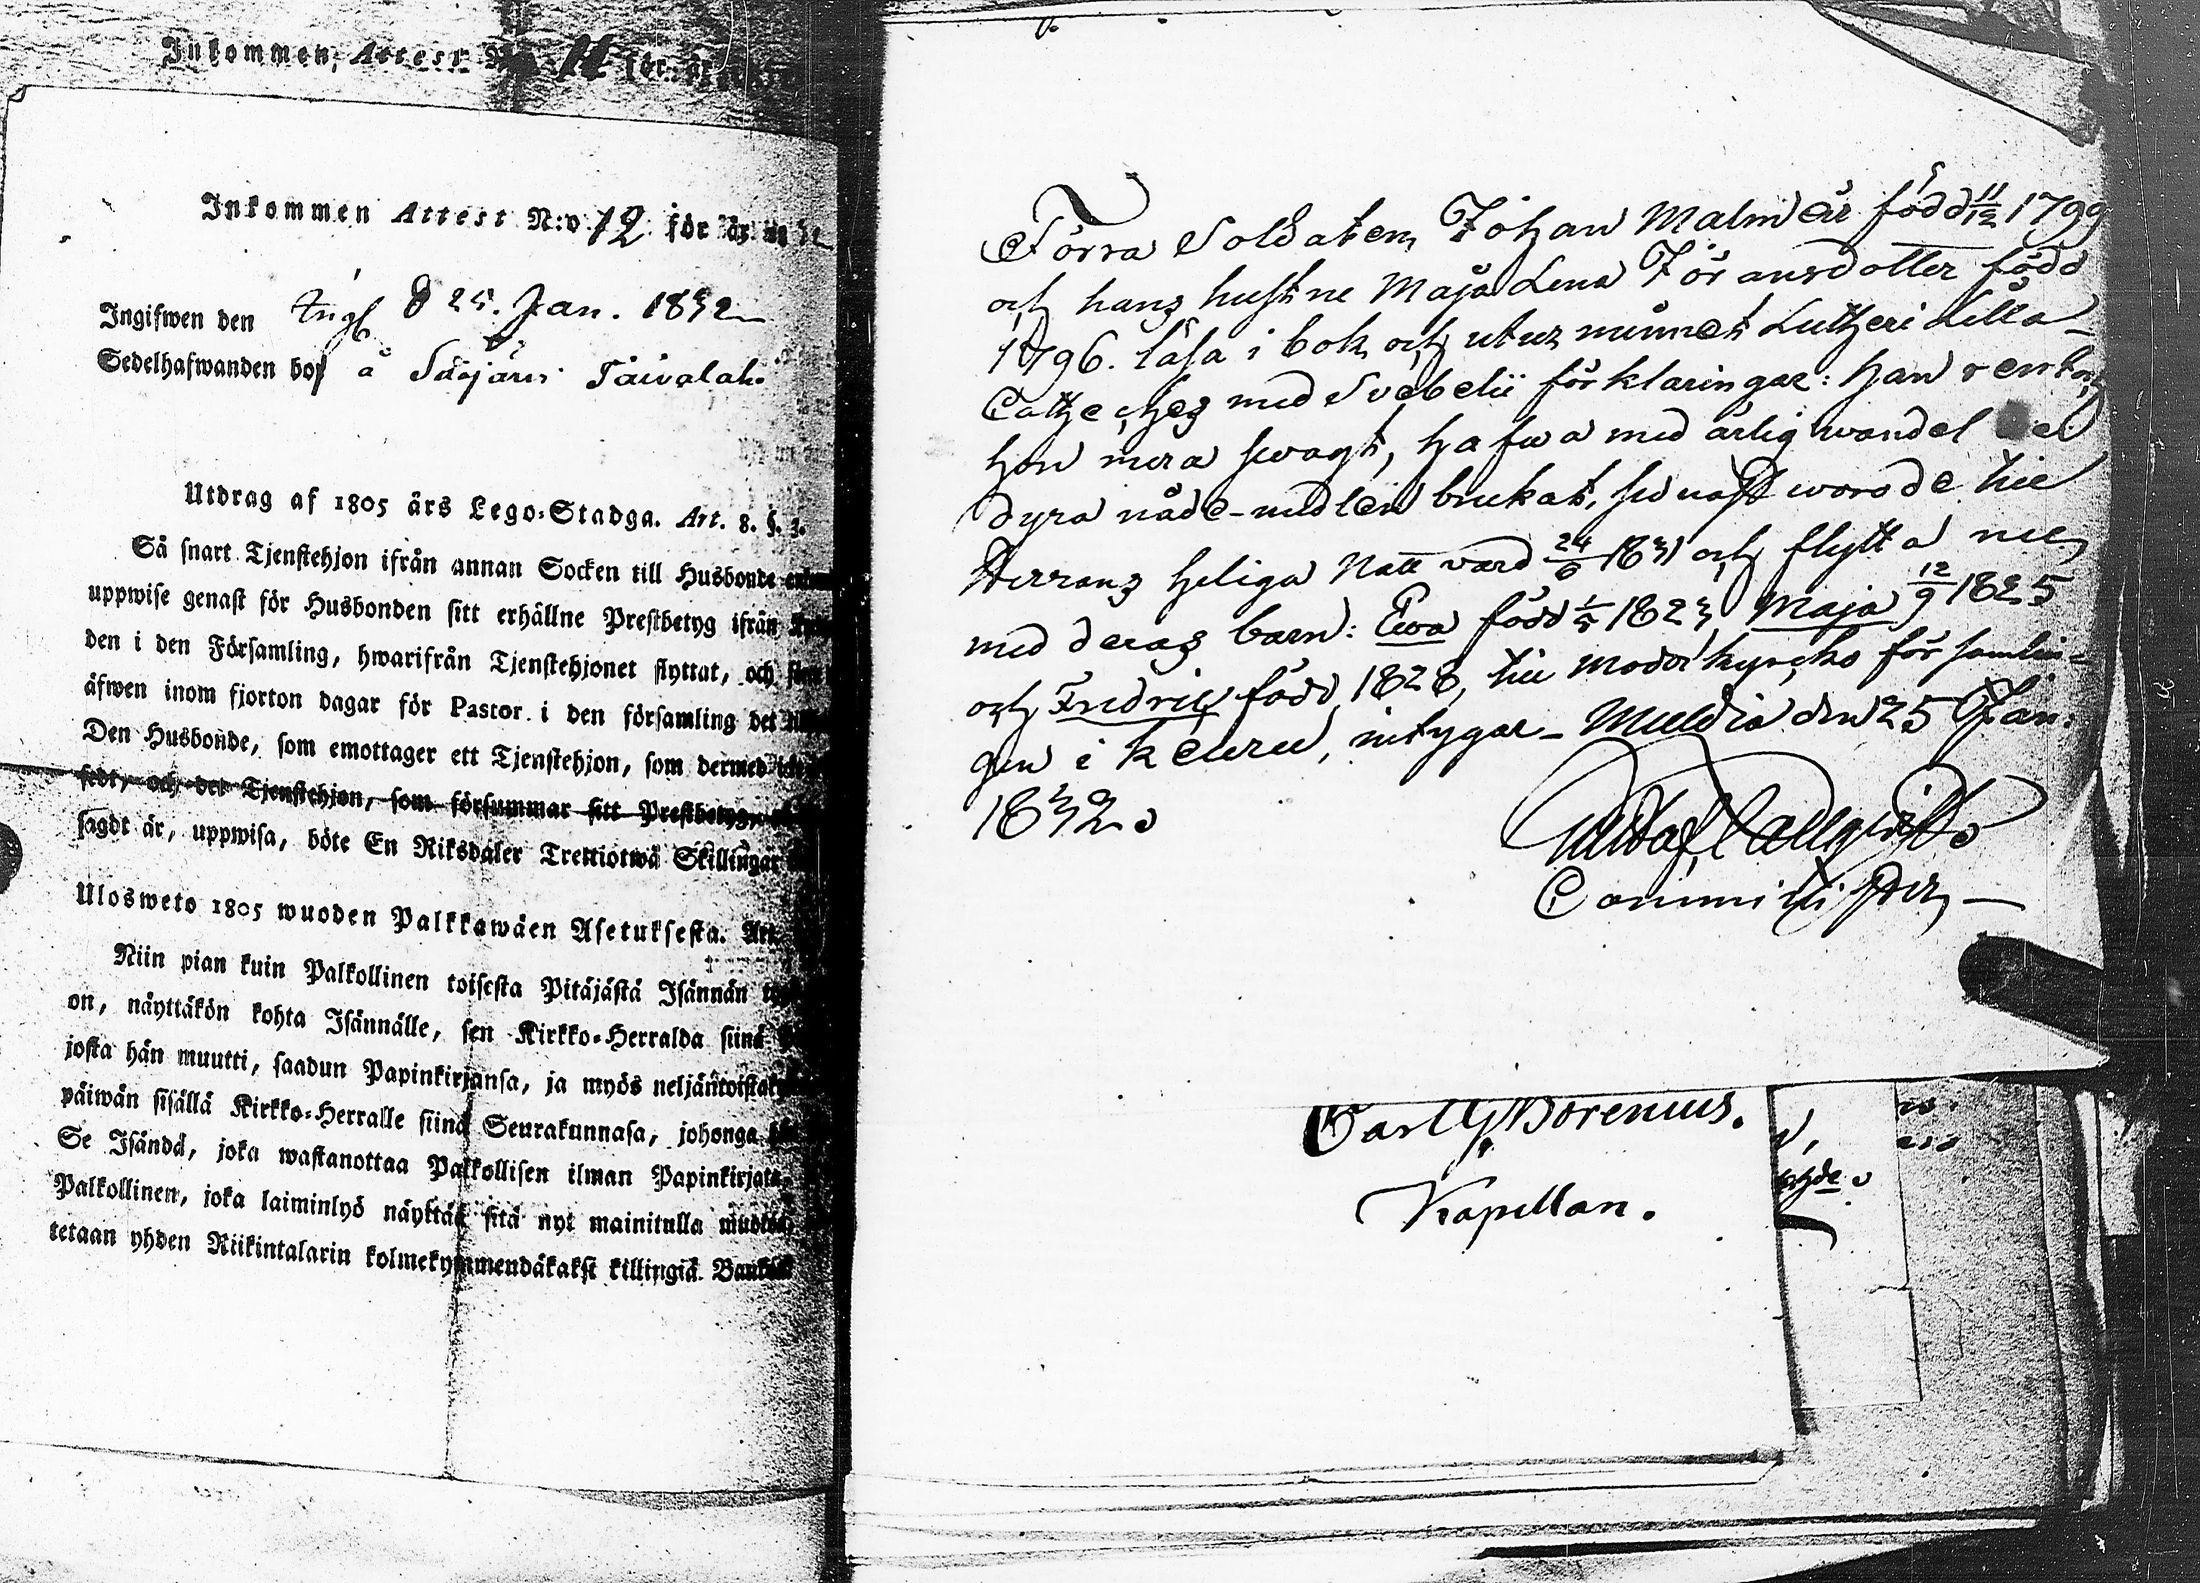 Inkommen, Attest N:o 11 för
Inkommen Attest N:o 12 för
Ingifwen den Ingf d 25. Jan. 1832
Sedelhafwanden bor å
Utdrag af 1805 års Lego-Stadga. Art. 8. §. 3.
Så snart Tjenstehjon ifrån annan Socken till Husbonde
uppwise genast för Husbonden sitt erhållne Prestbetyg ifrån
den i den Församling, hwarifrån Tjenstehjonet flyttat, och
äfwen inom fjorton dagar för Pastor i den församling det
Den Husbonde, som emottager ett Tjenstehjon, som dermed
sedt, och det Tjenstehjon, som försummar sitt Prestbetyg,
sagdt är, uppwisa, böte En Riksdaler Trettiotwå Skillingar
Ulosweto 1805 wuoden Palkkawäen Asetuksesta. Art.
Niin pian kuin Palkollinen toisesta Pitäjästä Isännän
on, näyttäkön kohta Isännälle, sen Kirkko-Herralda siinä
josta hän muutti, saadun Papinkirjansa, ja myös neljäntoista
päiwän sisällä Kirkko-Herralle siinä Seurakunnasa, johonga
Se Isändä, joka wastanottaa Palkollisen ilman Papinkirjata,
Palkollinen, joka laiminlyö näyttää sitä nyt mainitulla
tetaan yhden Riikintalarin kolmekymmendäkaksi killingiä Banko
Förra Soldaten Johan Malm är född 11/12 1799
och hans hustru Maja Lena Göransdotter född
1796. läsa i bok och utur minnet Lutheri Lilla
Cateches med Svebelii förklaringar: han rent och
hon mera swagt, hafwa med ärlig wandel de
dyra nåde-medlen brukat, sednast woro de till
Herrans heliga Nattvard 24/6 1831 och flytta nu
med deras barn: Ewa född 1/5 1823 Maja 12/9 1825
och Fredric född 1828, till moderkyrko församlin=
gen i Keuru, intygar _ Muldia den 25 Jan:
1832.
Gustaf
Comminister
Carl G Borenius.
Kapellan.